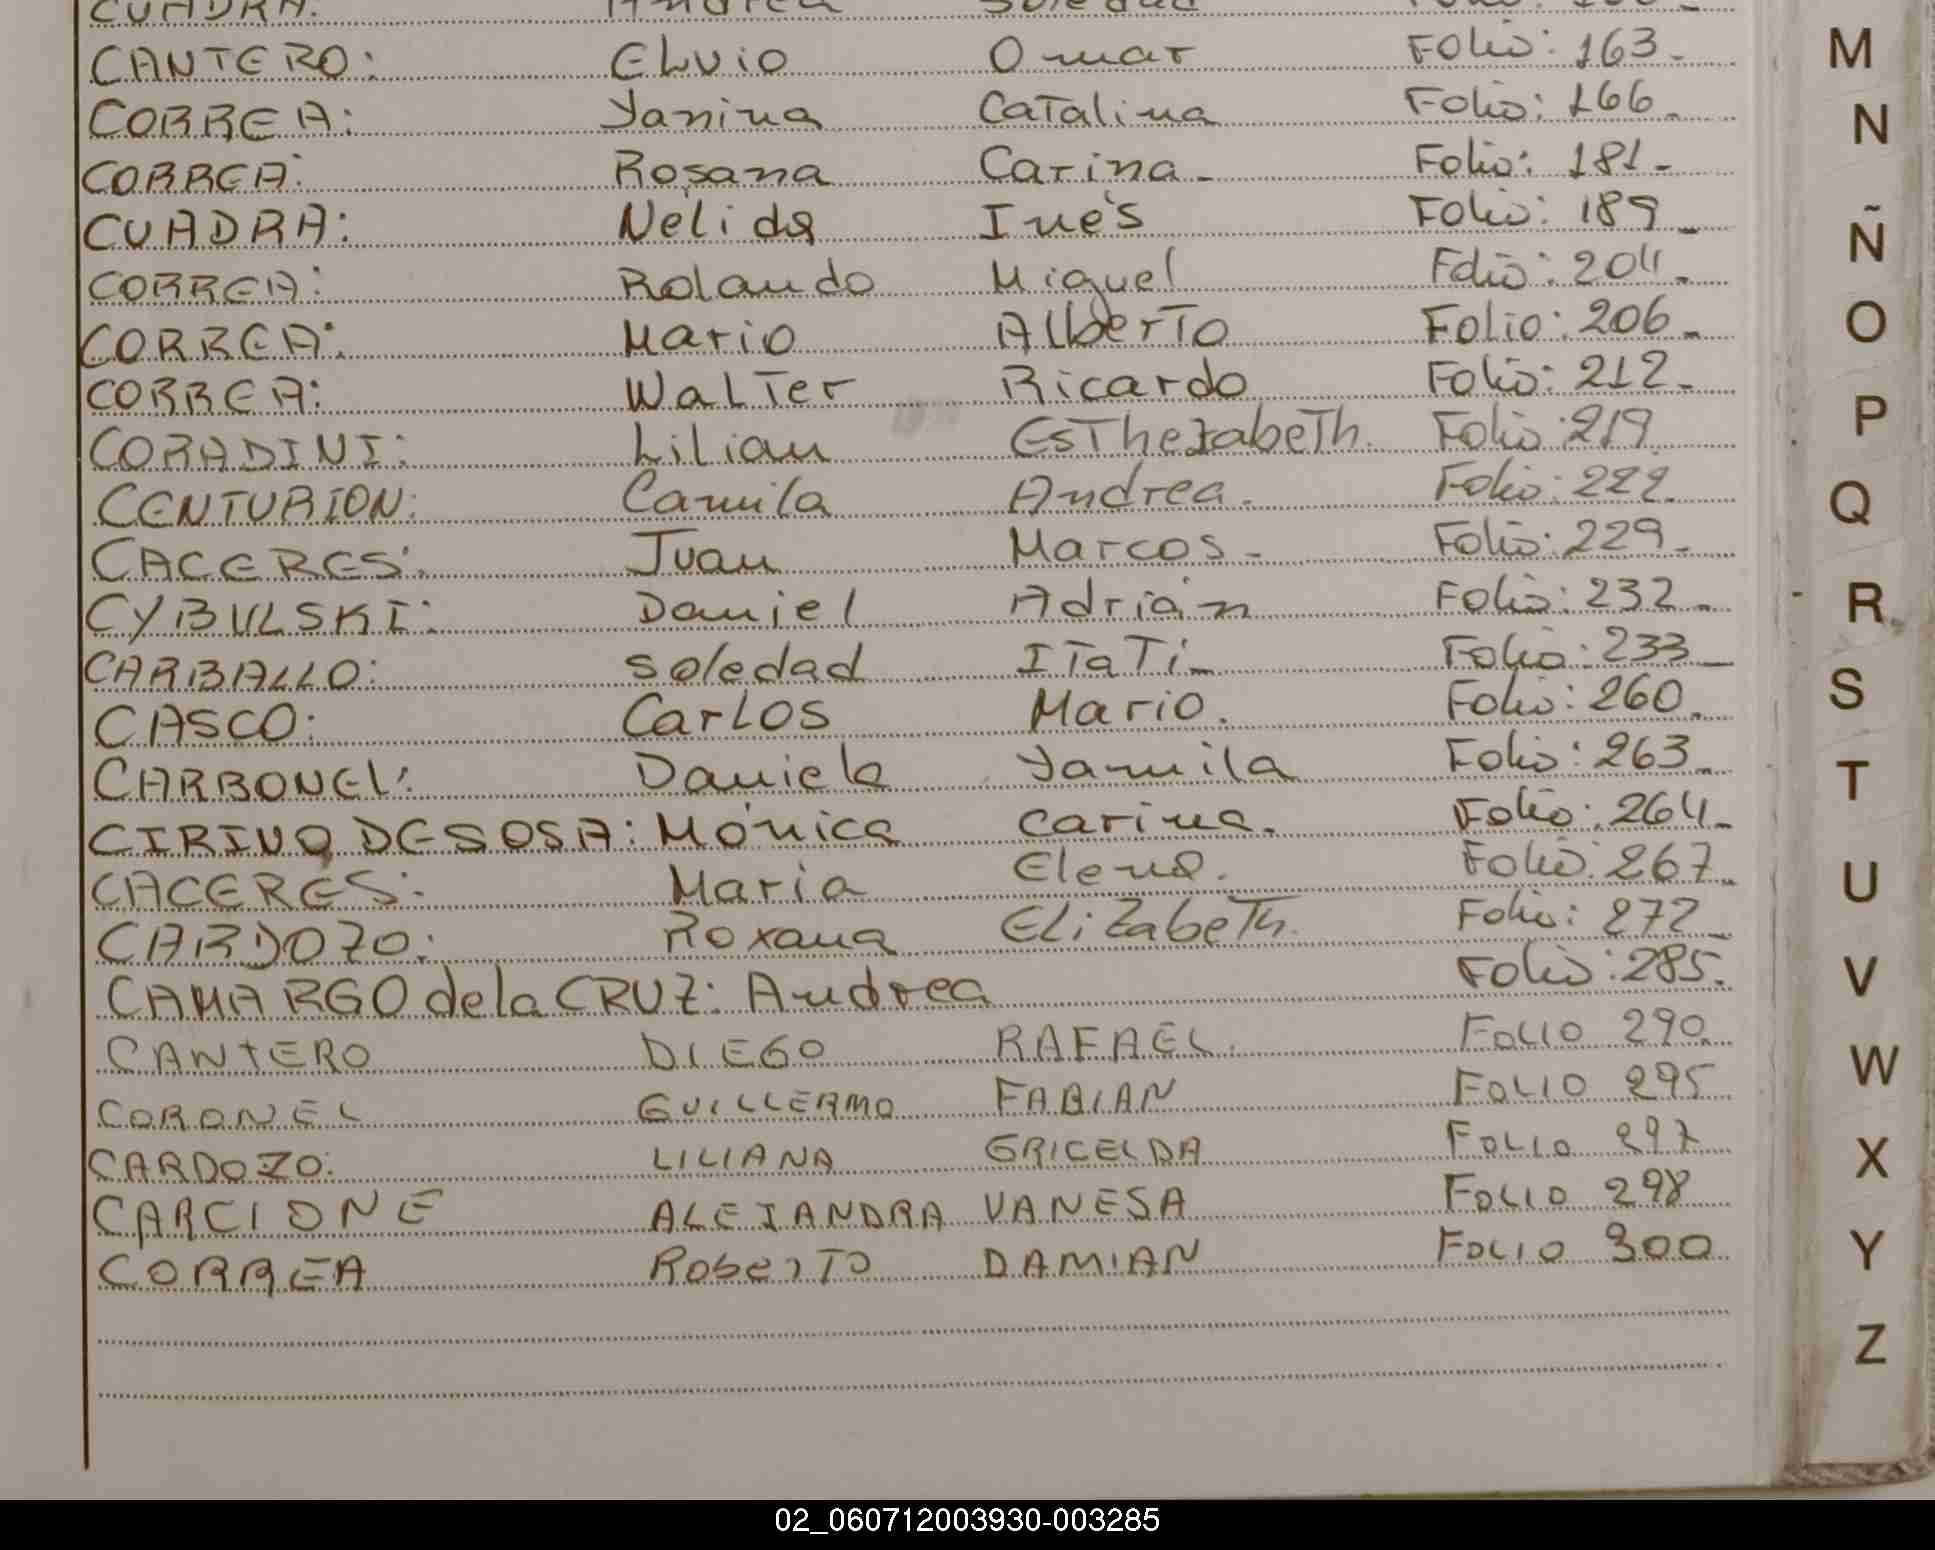 CUADRA: Andrea Soledad
CANTERO: Elvio Omar Folio: 163.-
CORREA: Yanina Catalina Folio: 166.
CORREA: Rosana Carina.- Folio: 181.-
CUADRA: Nelida Inés Folio: 189.-
CORREA: Rolando Miguel Folio: 204.-
CORREA: Mario Alberto Folio: 206.-
CORREA: Walter Ricardo Folio: 212.-
CORADINI: Lilian Folio: 219
CENTURION: Camila Andrea. Folio: 222.
CACERES: Juan Marcos.- Folio: 229.-
CYBULSKI: Daniel Adrián Folio: 232.-
CARBALLO: Soledad ITaTí.- Folio: 233.-
CASCO: Carlos Mario. Folio: 260.
CARBONEL: Daniela Yamila Folio: 263.-
CIRINO DE SOSA: Mónica Carina. Folio: 264.-
CACERES: María Elena. Folio: 267.
CARDOZO: Roxana Elizabeth. Folio: 272.-
CAMARGO de la CRUZ: Andrea Folio: 285.
CANTERO DIEGO RAFAEL. FOLIO 290.
CORONEL GUILLERMO FABIAN FOLIO 295
CARDOZO: LILIANA GRICELDA FOLIO 297
CARCIONE ALEJANDRA VANESA FOLIO 298
CORREA Roberto DAMIAN FOLIO 300
M
N
Ñ
O
P
Q
R
S
T
U
V
W
X
Y
Z
02_060712003930-003285